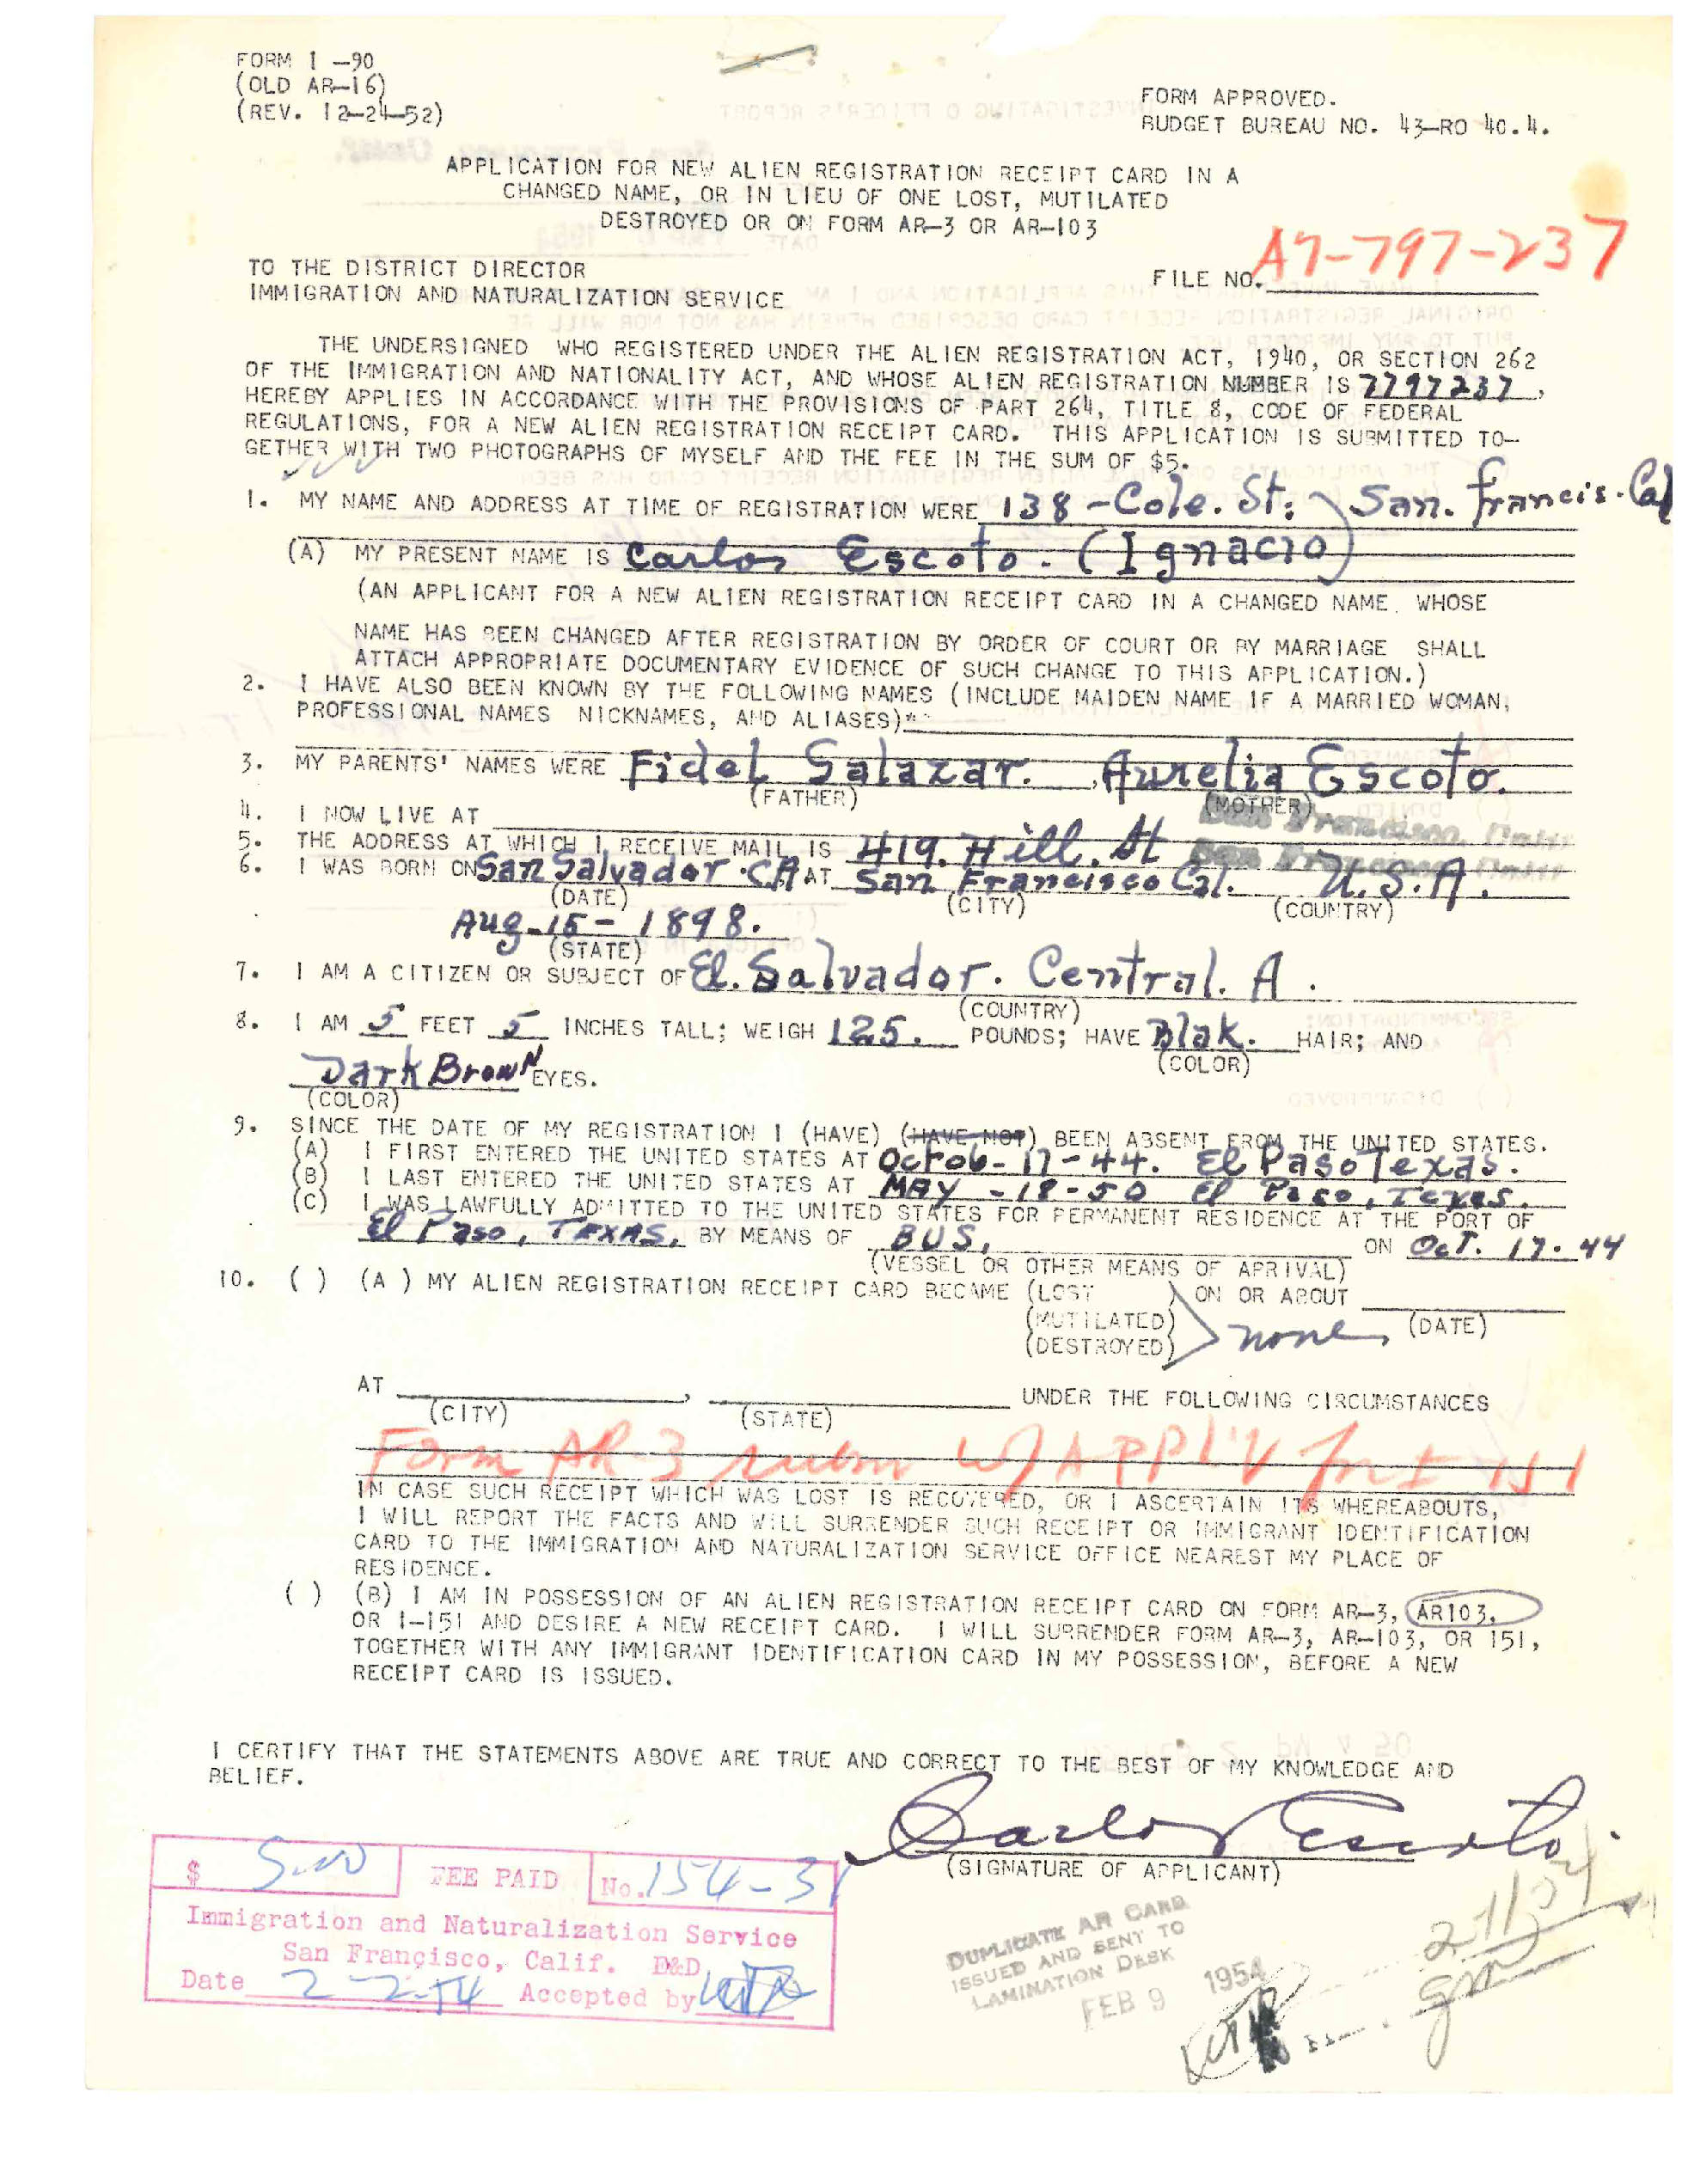 FORM I-90
(OLD AR-16)
(REV. 12-24-52)
FORM APPROVED.
BUDGET BUREAU NO. 43-RO 40.4.
APPLICATION FOR NEW ALIEN REGISTRATION RECEIPT CARD IN A
CHANGED NAME, OR IN LIEU OF ONE LOST, MUTILATED
DESTROYED OR ON FORM AR-3 OR AR-103
TO THE DISTRICT DIRECTOR
IMMIGRATION AND NATURALIZATION SERVICE
FILE NO. A7-797-237
THE UNDERSIGNED WHO REGISTERED UNDER THE ALIEN REGISTRATION ACT, 1940, OR SECTION 262
OF THE IMMIGRATION AND NATIONALITY ACT, AND WHOSE ALIEN REGISTRATION NUMBER IS 7797237,
HEREBY APPLIES IN ACCORDANCE WITH THE PROVISIONS OF PART 264, TITLE 8, CODE OF FEDERAL
REGULATIONS, FOR A NEW ALIEN REGISTRATION RECEIPT CARD. THIS APPLICATION IS SUBMITTED TO-
GETHER WITH TWO PHOTOGRAPHS OF MYSELF AND THE FEE IN THE SUM OF $5.
1. MY NAME AND ADDRESS AT TIME OF REGISTRATION WERE 138-Cole. St. San. Francis. Cal
(A) MY PRESENT NAME IS Carlos Escoto. (Ignacio)
(AN APPLICANT FOR A NEW ALIEN REGISTRATION RECEIPT CARD IN A CHANGED NAME WHOSE
NAME HAS BEEN CHANGED AFTER REGISTRATION BY ORDER OF COURT OR BY MARRIAGE SHALL
ATTACH APPROPRIATE DOCUMENTARY EVIDENCE OF SUCH CHANGE TO THIS APPLICATION.)
2. I HAVE ALSO BEEN KNOWN BY THE FOLLOWING NAMES (INCLUDE MAIDEN NAME IF A MARRIED WOMAN,
PROFESSIONAL NAMES NICKNAMES, AND ALIASES)
3. MY PARENTS' NAMES WERE Fidel Salazar. Aurelia Escoto.
(FATHER) (MOTHER)
4. I NOW LIVE AT San Francisco, Calif
5. THE ADDRESS AT WHICH I RECEIVE MAIL IS 419. Hill. St San Francisco, Calif
6. I WAS BORN ON San Salvador. CA AT San Francisco Cal. U.S.A.
(DATE) (CITY) (COUNTRY)
Aug-15-1898.
(STATE)
7. I AM A CITIZEN OR SUBJECT OF El. Salvador. Central. A.
(COUNTRY)
8. I AM 5 FEET 5 INCHES TALL; WEIGH 125. POUNDS; HAVE Blak. HAIR; AND
(COLOR)
Dark Brown EYES.
(COLOR)
9. SINCE THE DATE OF MY REGISTRATION I (HAVE) (HAVE NOT) BEEN ABSENT FROM THE UNITED STATES.
(A) I FIRST ENTERED THE UNITED STATES AT Octob-17-44. El Paso Texas.
(B) I LAST ENTERED THE UNITED STATES AT MAY -18-50 El Paso, Texas.
(C) I WAS LAWFULLY ADMITTED TO THE UNITED STATES FOR PERMANENT RESIDENCE AT THE PORT OF
El Paso, TEXAS, BY MEANS OF BUS, ON Oct. 17-44
(VESSEL OR OTHER MEANS OF ARRIVAL)
10. ( ) (A) MY ALIEN REGISTRATION RECEIPT CARD BECAME (LOST ) ON OR ABOUT
(MUTILATED) none (DATE)
(DESTROYED)
AT , UNDER THE FOLLOWING CIRCUMSTANCES
(CITY) (STATE)
Form AR-3 subm w/APPL'N for I-151
IN CASE SUCH RECEIPT WHICH WAS LOST IS RECOVERED, OR I ASCERTAIN ITS WHEREABOUTS,
I WILL REPORT THE FACTS AND WILL SURRENDER SUCH RECEIPT OR IMMIGRANT IDENTIFICATION
CARD TO THE IMMIGRATION AND NATURALIZATION SERVICE OFFICE NEAREST MY PLACE OF
RESIDENCE.
( ) (B) I AM IN POSSESSION OF AN ALIEN REGISTRATION RECEIPT CARD ON FORM AR-3, AR103,
OR I-151 AND DESIRE A NEW RECEIPT CARD. I WILL SURRENDER FORM AR-3, AR-103, OR 151,
TOGETHER WITH ANY IMMIGRANT IDENTIFICATION CARD IN MY POSSESSION, BEFORE A NEW
RECEIPT CARD IS ISSUED.
I CERTIFY THAT THE STATEMENTS ABOVE ARE TRUE AND CORRECT TO THE BEST OF MY KNOWLEDGE AND
BELIEF.
Carlos Escoto.
(SIGNATURE OF APPLICANT)
$ 5.00 FEE PAID No. 154-31
Immigration and Naturalization Service
San Francisco, Calif. D&D
Date 2-2-54 Accepted by
DUPLICATE AR CARD
ISSUED AND SENT TO
LAMINATION DESK
FEB 9 1954